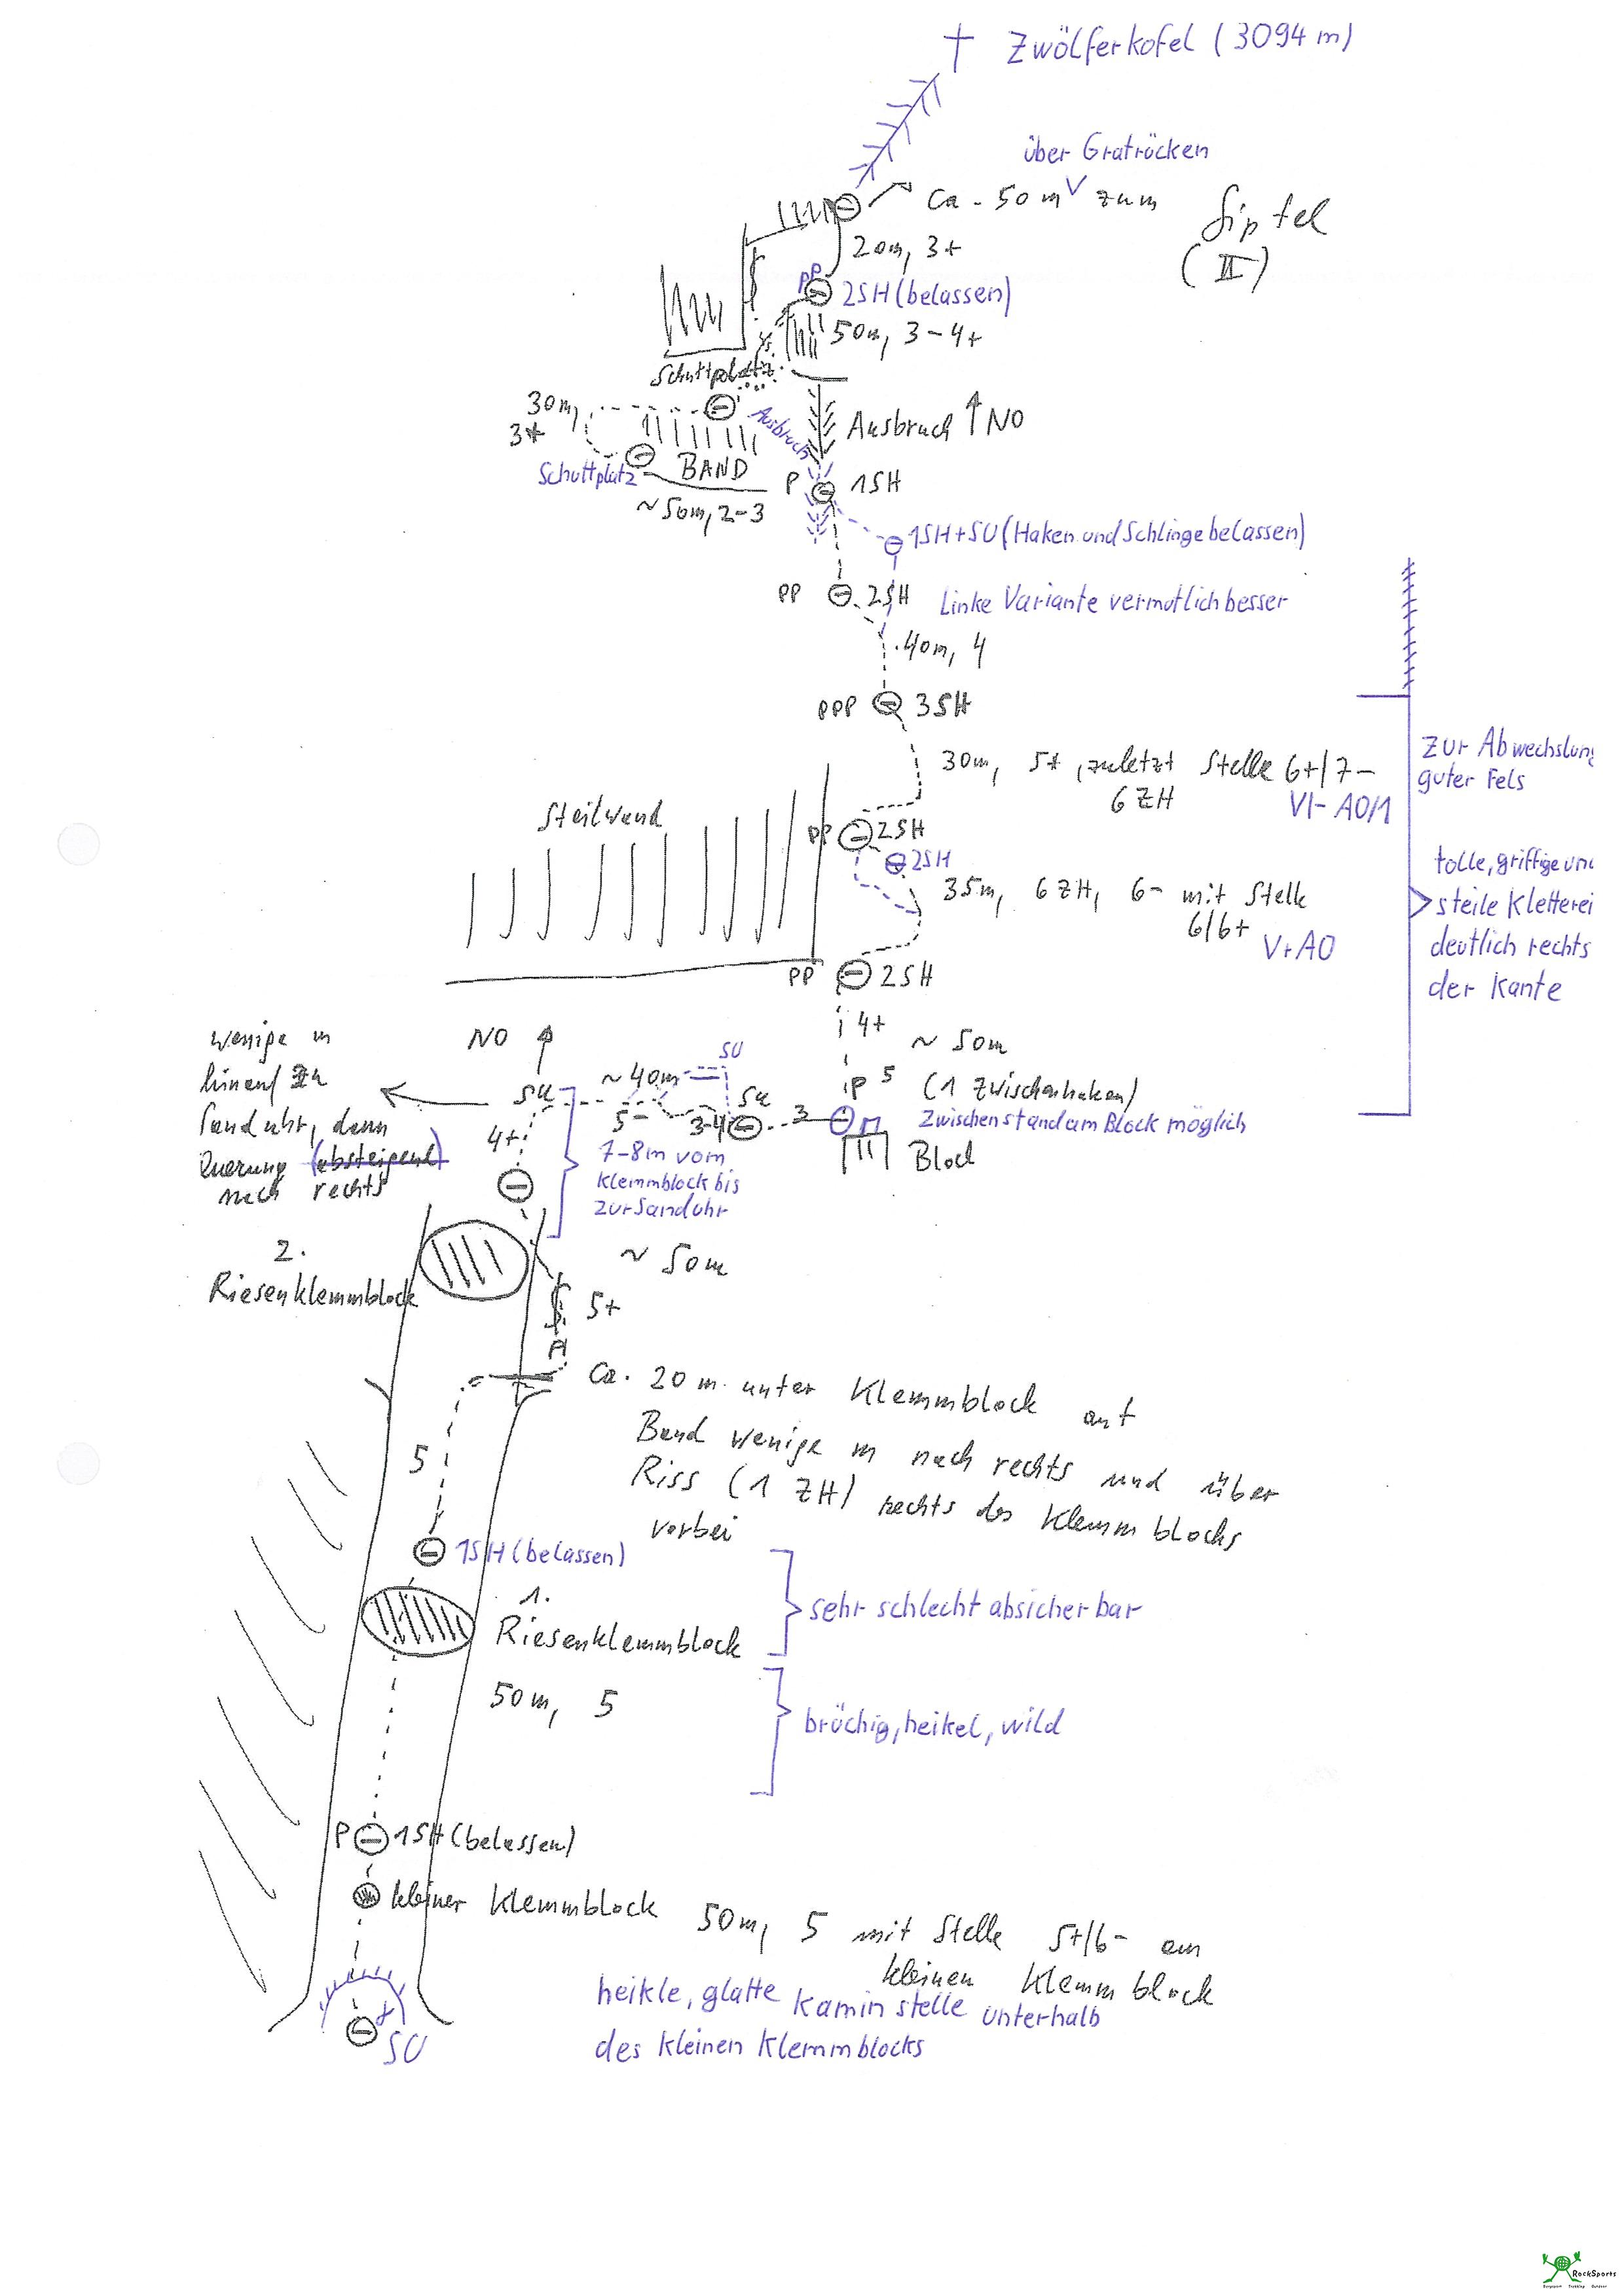 Zwölferkofel (3094 m)
über Gratrücken
ca. 50 m zum Gipfel
(II)
20m, 3+
PP
2SH (belassen)
50m, 3-4+
Schuttplatz
30m,
3+
Ausbruch
Ausbruch ↑ NO
BAND
Schuttplatz
~50m, 2-3
P 1SH
1SH+SU (Haken und Schlinge belassen)
PP 2SH
Linke Variante vermutlich besser
40m, 4
PPP 3SH
30m, 5+, zuletzt Stelle 6+/7-
6 ZH
VI- A0/1
Zur Abwechslung
guter Fels
Steilwand
PP 2SH
2SH
35m, 6 ZH, 6- mit Stelle
6/6+
V+ A0
tolle, griffige und
steile Kletterei
deutlich rechts
der Kante
PP 2SH
4+
~ 50m
P 5 (1 Zwischenhaken)
Zwischenstand am Block möglich
Block
NO
wenige m
hinauf zu
Sanduhr, dann
Querung (absteigend)
nach rechts
SU
~ 40m
SU
SU
5-
3-4
3
4+
7-8m vom
Klemmblock bis
zur Sanduhr
2.
Riesenklemmblock
~ 50m
5+
Ca. 20 m unter Klemmblock auf
Band wenige m nach rechts und über
Riss (1 ZH) rechts des Klemmblocks
vorbei
5
1SH (belassen)
1.
Riesenklemmblock
sehr schlecht absicherbar
50m, 5
brüchig, heikel, wild
P 1SH (belassen)
kleiner Klemmblock
50m, 5 mit Stelle 5+/6- am
kleinen Klemmblock
heikle, glatte Kaminstelle unterhalb
des kleinen Klemmblocks
SU
RockSports